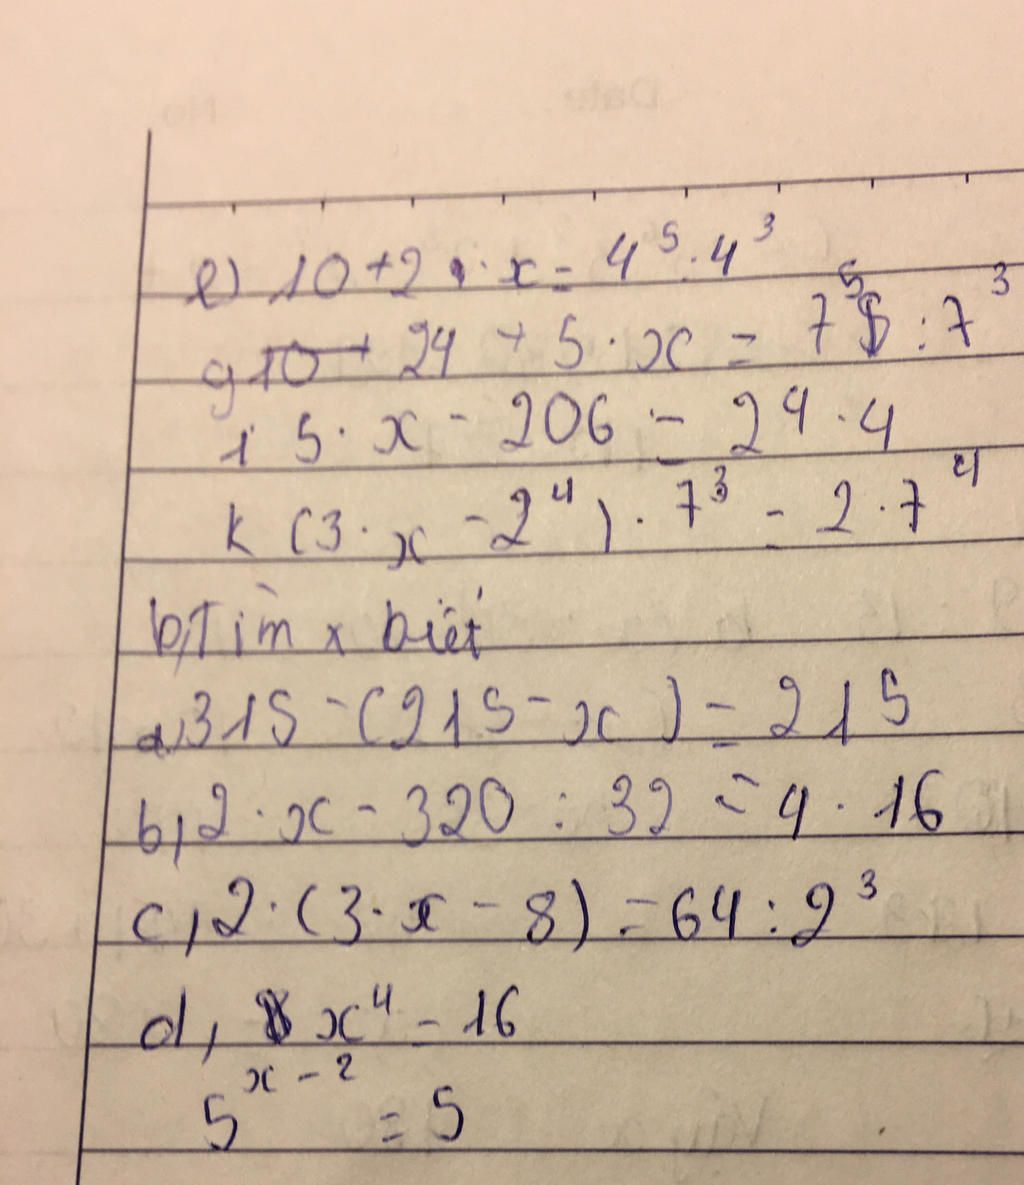 e) 10 + 2 . x = 4⁵ . 4³
g 24 + 5 . x = 7⁵ : 7³
i 5 . x - 206 = 2⁴ . 4
k (3 . x - 2⁴) . 7³ = 2 . 7⁴
b, Tìm x biết
a, 315 - (215 - x) = 215
b, 2 . x - 320 : 32 = 4 . 16
c, 2 . (3 . x - 8) = 64 : 2³
d, x⁴ = 16
5ˣ⁻² = 5